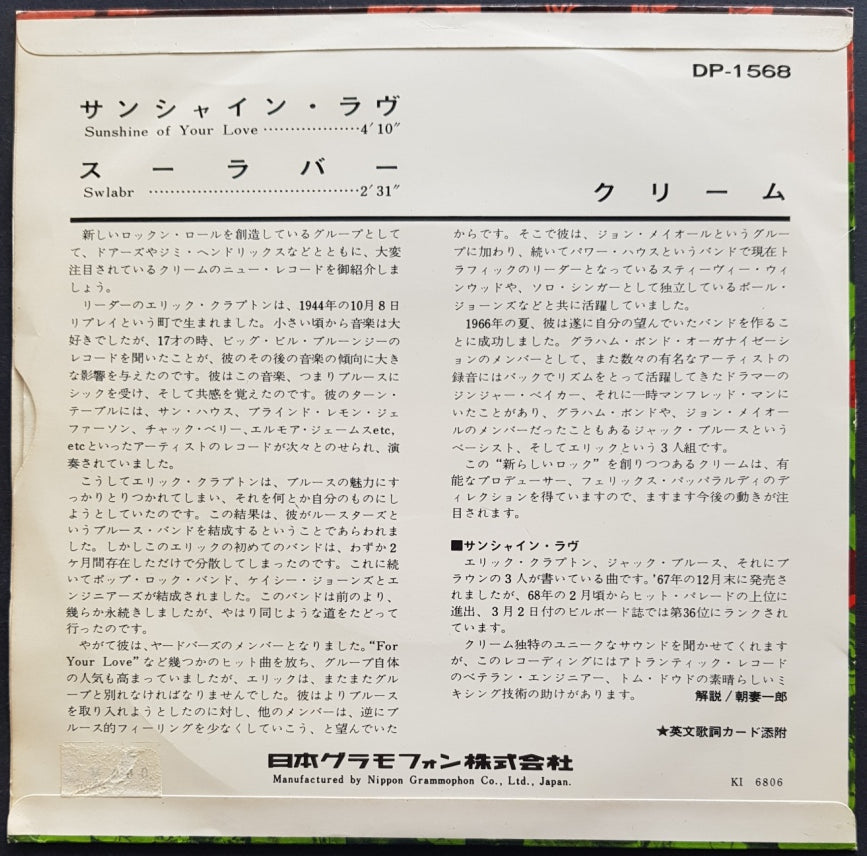 DP-1568
サンシャイン・ラヴ
Sunshine of Your Love ··················4′10″
スーラバー
Swlabr ·······································2′31″
クリーム
新しいロックン・ロールを創造しているグループとし
て、ドアーズやジミ・ヘンドリックスなどとともに、大変
注目されているクリームのニュー・レコードを御紹介しま
しょう。
リーダーのエリック・クラプトンは、1944年の10月8日
リプレイという町で生まれました。小さい頃から音楽は大
好きでしたが、17才の時、ビッグ・ビル・ブルーンジーの
レコードを聞いたことが、彼のその後の音楽の傾向に大き
な影響を与えたのです。彼はこの音楽、つまりブルースに
シックを受け、そして共感を覚えたのです。彼のターン・
テーブルには、サン・ハウス、ブラインド・レモン・ジェ
ファーソン、チャック・ベリー、エルモア・ジェームスetc,
etcといったアーティストのレコードが次々とのせられ、演
奏されていました。
こうしてエリック・クラプトンは、ブルースの魅力にす
っかりとりつかれてしまい、それを何とか自分のものにし
ようとしていたのです。この結果は、彼がルースターズと
いうブルース・バンドを結成するということであらわれま
した。しかしこのエリックの初めてのバンドは、わずか2
ケ月間存在しただけで分散してしまったのです。これに続
いてポップ・ロック・バンド、ケイシー・ジョーンズとエ
ンジニアーズが結成されました。このバンドは前のより、
幾らか永続きしましたが、やはり同じような道をたどって
行ったのです。
やがて彼は、ヤードバーズのメンバーとなりました。“For
Your Love”など幾つかのヒット曲を放ち、グループ自体
の人気も高まっていましたが、エリックは、またまたグル
ープと別れなければなりませんでした。彼はよりブルース
を取り入れようとしたのに対し、他のメンバーは、逆にブ
ルース的フィーリングを少なくしていこう、と望んでいた
からです。そこで彼は、ジョン・メイオールというグルー
プに加わり、続いてパワー・ハウスというバンドで現在ト
ラフィックのリーダーとなっているスティーヴィー・ウィ
ンウッドや、ソロ・シンガーとして独立しているポール・
ジョーンズなどと共に活躍していました。
1966年の夏、彼は遂に自分の望んでいたバンドを作るこ
とに成功しました。グラハム・ボンド・オーガナイゼーシ
ョンのメンバーとして、また数々の有名なアーティストの
録音にはバックでリズムをとって活躍してきたドラマーの
ジンジャー・ベイカー、それに一時マンフレッド・マンに
いたことがあり、グラハム・ボンドや、ジョン・メイオー
ルのメンバーだったこともあるジャック・ブルースという
ベーシスト、そしてエリックという3人組です。
この“新らしいロック”を創りつつあるクリームは、有
能なプロデューサー、フェリックス・パッパラルディのデ
ィレクションを得ていますので、ますます今後の動きが注
目されます。
■サンシャイン・ラヴ
エリック・クラプトン、ジャック・ブルース、それにブ
ラウンの3人が書いている曲です。’67年の12月末に発売さ
れましたが、68年の2月頃からヒット・パレードの上位に
進出、3月2日付のビルボード誌では第36位にランクされ
ています。
クリーム独特のユニークなサウンドを聞かせてくれます
が、このレコーディングにはアトランティック・レコード
のベテラン・エンジニアー、トム・ドウドの素晴らしいミ
キシング技術の助けがあります。 解説/朝妻一郎
★英文歌詞カード添附
日本グラモフォン株式会社
Manufactured by Nippon Grammophon Co., Ltd., Japan.
KI 6806